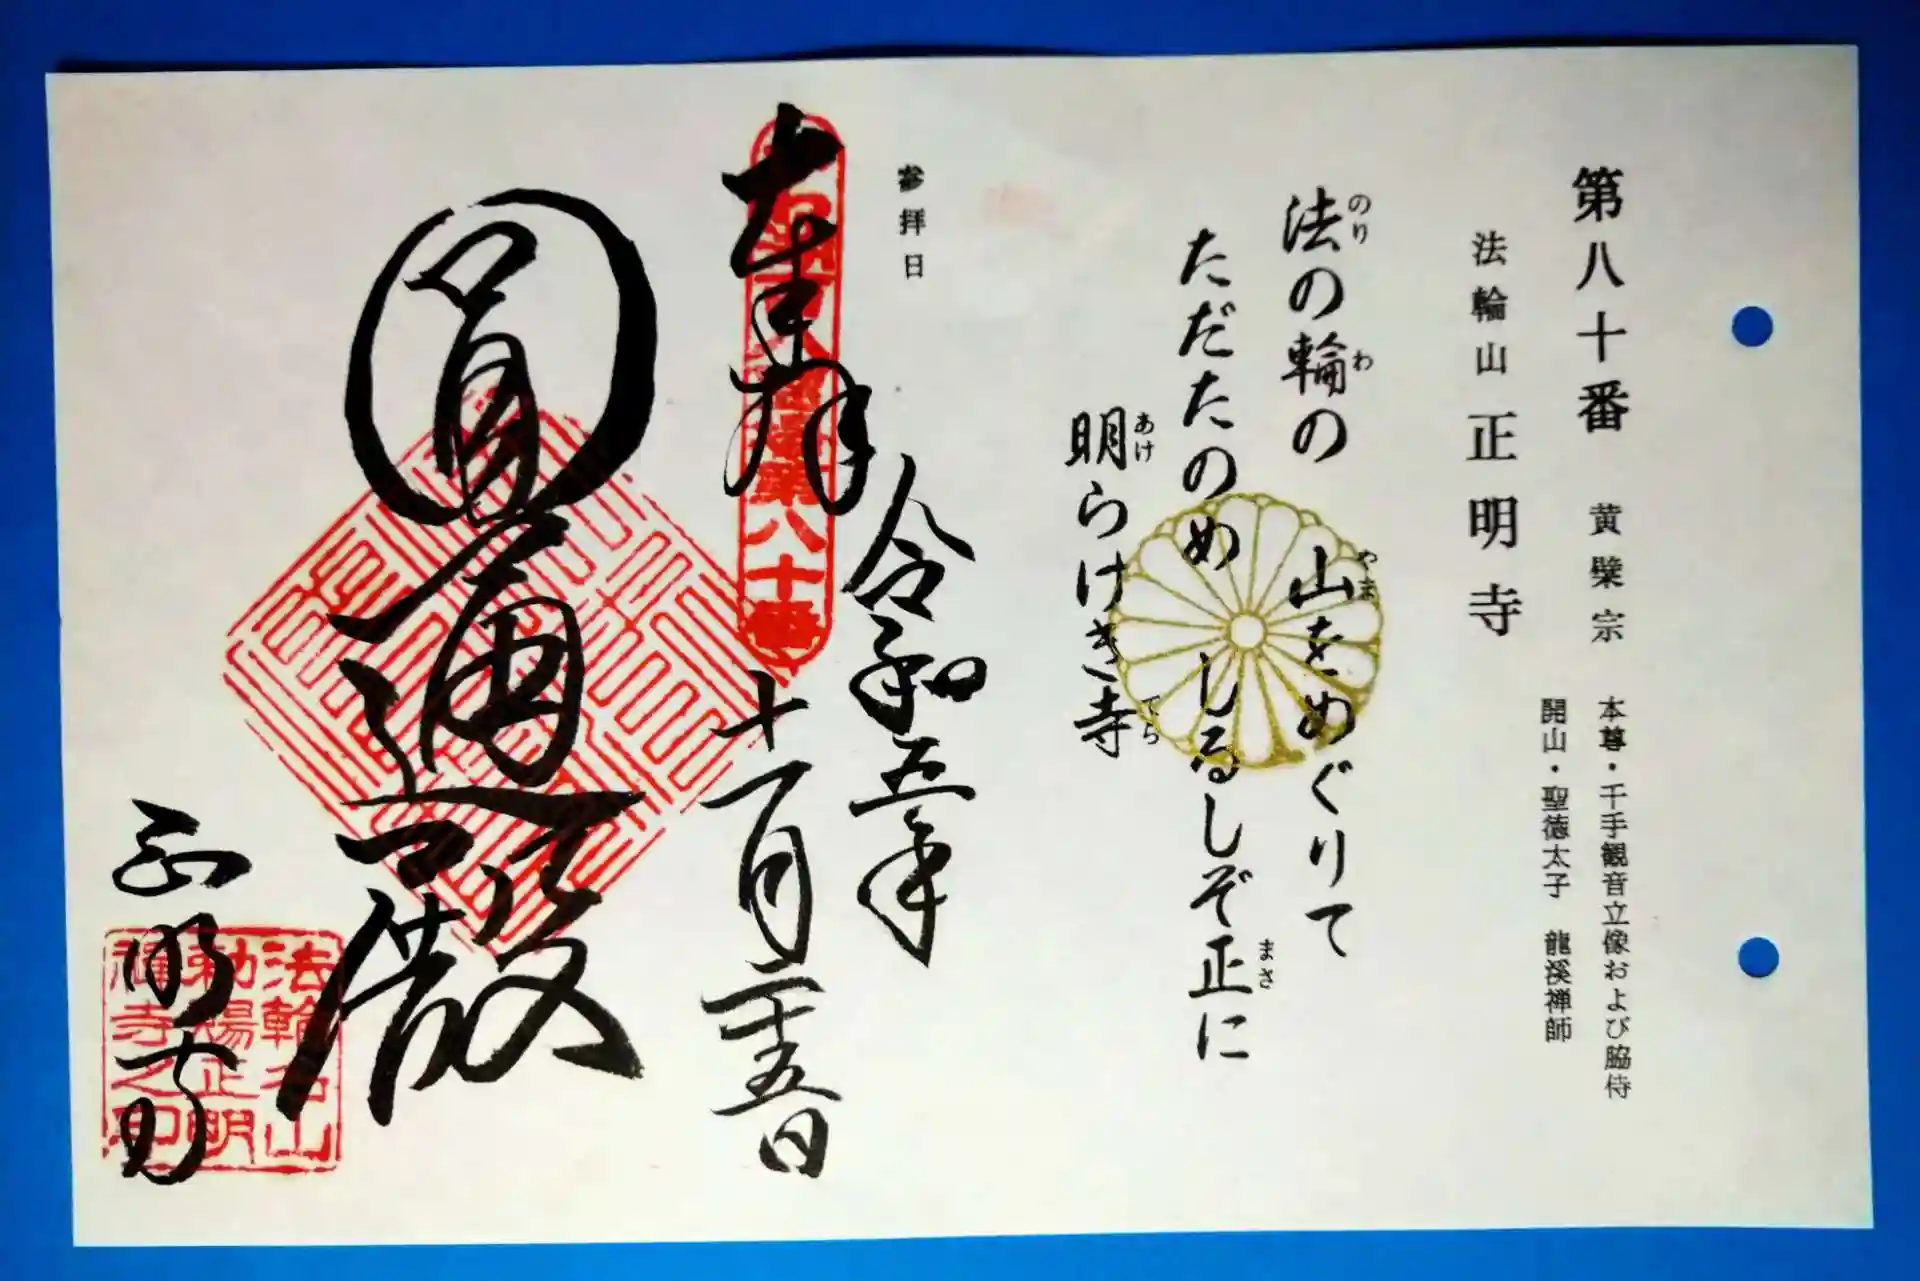 第八十番 黄檗宗
本尊・千手観音立像および脇侍
開山・聖徳太子 龍溪禅師
法輪山 正明寺
法の輪の 山をめぐりて
のり わ やま
ただたのめ しるしぞ正に
まさ
明らけき寺
あけ てら
参拝日
令和五年
十一月二十五日
奉拝
第八十番
圓通殿
正明寺
法輪名山
勅賜正明
禅寺之印